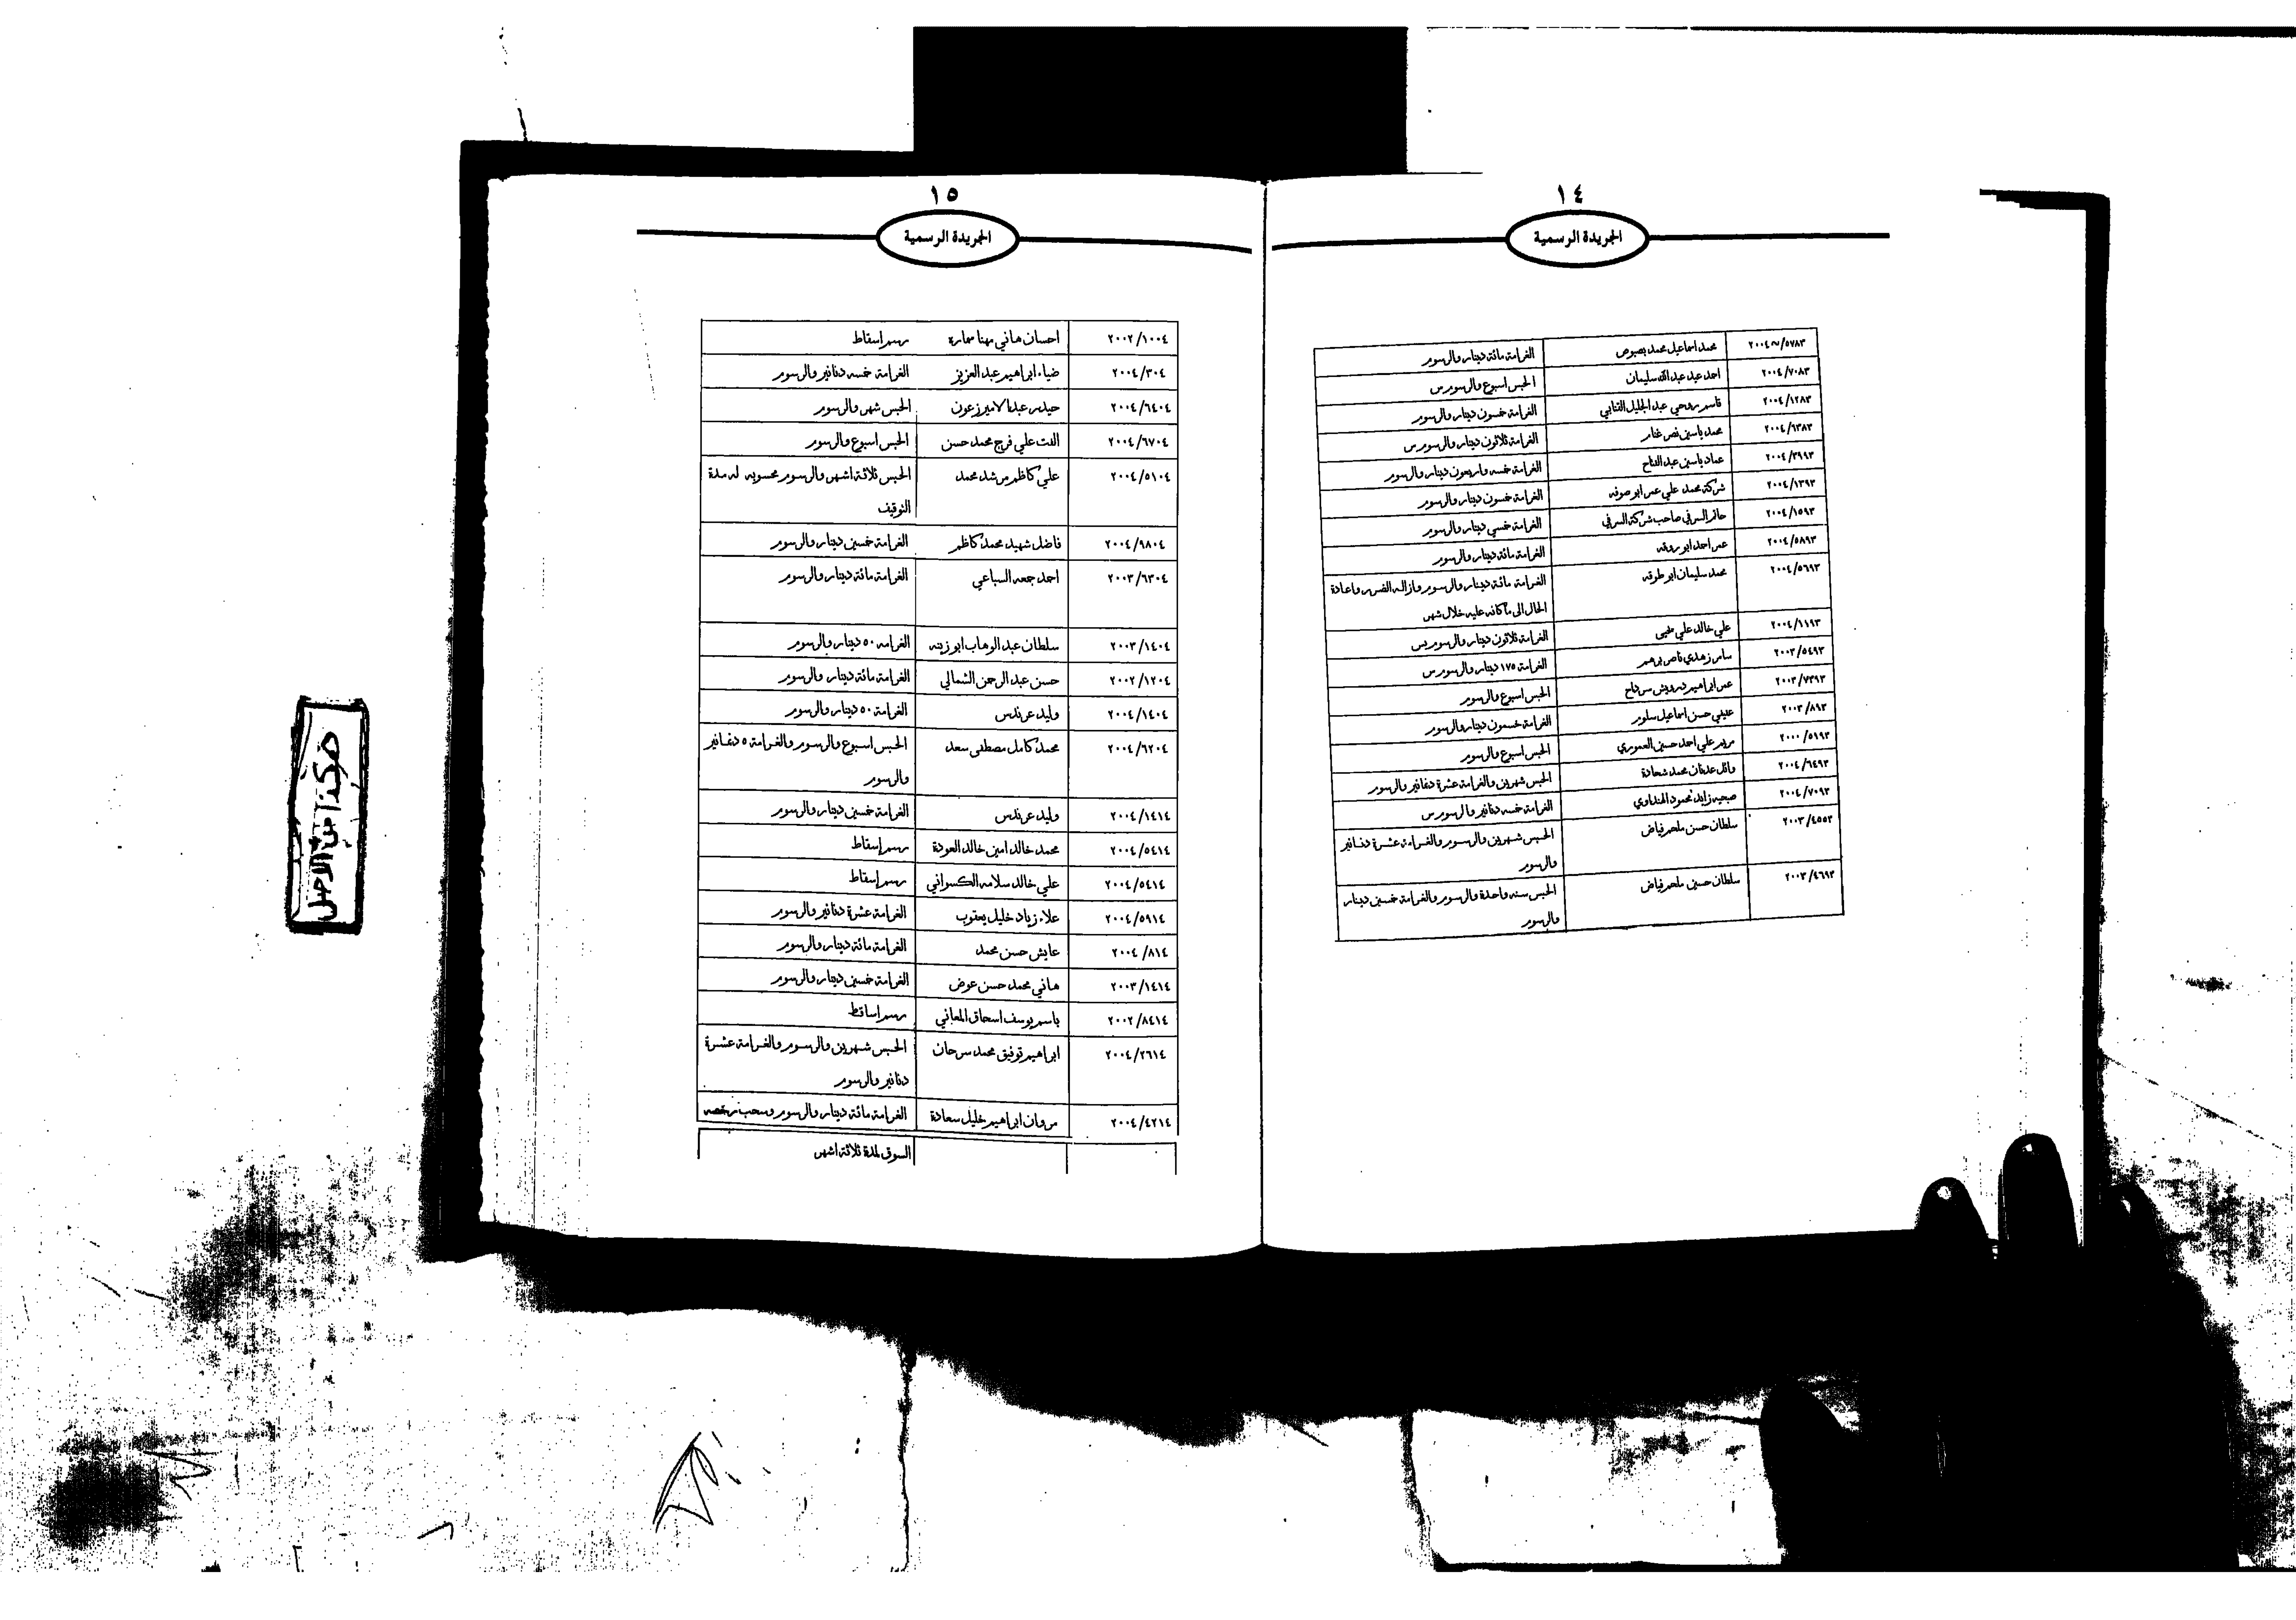 ١٤
الجريدة الرسمية
٢٠٠٤~/٥٧٨٣ محمد اسماعيل محمد بصبوص الغرامة مائة دينار والرسوم
٢٠٠٤/٧٠٨٣ احمد عيد عبد الله سليمان الحبس اسبوع والرسوم س
٢٠٠٤/١٢٨٣ قاسم روحي عبد الجليل الغرامة خمسون دينار والرسوم
٢٠٠٤/٦٣٨٣ محمد ياسين نصر غنام الغرامة ثلاثون دينار والرسوم س
٢٠٠٤/٣٩٩٣ عماد ياسين عبد الفتاح الغرامة خمسه واربعون دينار والرسوم
٢٠٠٤/١٣٩٣ شركة محمد علي عمر ابو صوفه الغرامة خمسون دينار والرسوم
٢٠٠٤/١٥٩٣ حاتم السرفي صاحب شركة السرفي الغرامة خمسي دينار والرسوم
٢٠٠٤/٥٨٩٣ عمر احمد ابو روقه الغرامة مائة دينار والرسوم
٢٠٠٤/٥٦٩٣ محمد سليمان ابو طوقه الغرامة مائة دينار والرسوم وازاله الضرر واعادة
الحال الى ماكانه عليه خلال شهر
٢٠٠٤/١١٩٣ علي خالد علي الغرامة ثلاثون دينار والرسوم س
٢٠٠٣/٥٤٩٣ سامر زهدي ناصر برهم الغرامة ١٧٥ دينار والرسوم س
٢٠٠٣/٧٣٩٣ عمر ابراهيم درويش سرداح الحبس اسبوع والرسوم
٢٠٠٣/٨٩٣ عفيفي حسن اسماعيل سلوم الغرامة خمسون دينار والرسوم
٢٠٠٠/٥١٩٣ مريم علي احمد حسين العموري الحبس اسبوع والرسوم
٢٠٠٤/٦٤٩٣ وائل عدنان محمد شحادة الحبس شهرين والغرامة عشرة دنانير والرسوم
٢٠٠٤/٧٠٩٣ صبحيه زايد محمود الهنداوي الغرامة خمسه دنانير والرسوم س
٢٠٠٣/٤٥٥٣ سلطان حسن ملحم فياض الحبس شهرين والرسوم والغرامة عشرة دنانير
والرسوم
٢٠٠٣/٤٦٩٣ سلطان حسين ملحم فياض الحبس سنه واحدة والرسوم والغرامة خمسين دينار
والرسوم
١٥
الجريدة الرسمية
٢٠٠٢/١٠٠٤ احسان هاني مهنا سمارة رسم إسقاط
٢٠٠٤/٣٠٤ ضياء ابراهيم عبد العزيز الغرامة خمسه دنانير والرسوم
٢٠٠٤/٦٤٠٤ حيدر عبد الامير زعون الحبس شهر والرسوم
٢٠٠٤/٦٧٠٤ الفت علي فرج محمد حسن الحبس اسبوع والرسوم
٢٠٠٤/٥١٠٤ علي كاظم مرشد محمد الحبس ثلاثة اشهر والرسوم محسوبه له مدة
التوقيف
٢٠٠٤/٩٨٠٤ فاضل شهيد محمد كاظم الغرامة خمسين دينار والرسوم
٢٠٠٣/٦٣٠٤ احمد جمعه السباعي الغرامة مائة دينار والرسوم
٢٠٠٣/١٤٠٤ سلطان عبد الوهاب ابو زينه الغرامه ٥٠ دينار والرسوم
٢٠٠٢/١٢٠٤ حسن عبد الرحمن الشمالي الغرامة مائة دينار والرسوم
٢٠٠٤/١٤٠٤ وليد عرندس الغرامة ٥٠ دينار والرسوم
٢٠٠٤/٦٢٠٤ محمد كامل مصطفى سعد الحبس اسبوع والرسوم والغرامة ٥ دنانير
والرسوم
٢٠٠٤/١٤١٤ وليد عرندس الغرامة خمسين دينار والرسوم
٢٠٠٤/٥٤١٤ محمد خالد امين خالد العودة رسم إسقاط
٢٠٠٤/٥٤١٤ علي خالد سلامه الكسواني رسم إسقاط
٢٠٠٤/٥٩١٤ علاء زياد خليل يعقوب الغرامة عشرة دنانير والرسوم
٢٠٠٤/٨١٤ عايش حسن محمد الغرامة مائة دينار والرسوم
٢٠٠٣/١٤١٤ هاني محمد حسن عوض الغرامة خمسين دينار والرسوم
٢٠٠٢/٨٤١٤ باسم يوسف اسحاق المعاني رسم إساقط
٢٠٠٤/٢٦١٤ ابراهيم توفيق محمد سرحان الحبس شهرين والرسوم والغرامة عشرة
دنانير والرسوم
٢٠٠٤/٤٢١٤ مروان ابراهيم خليل سعادة الغرامة مائة دينار والرسوم وسحب رخصه
السوق لمدة ثلاثة اشهر
هكذا من الاصل